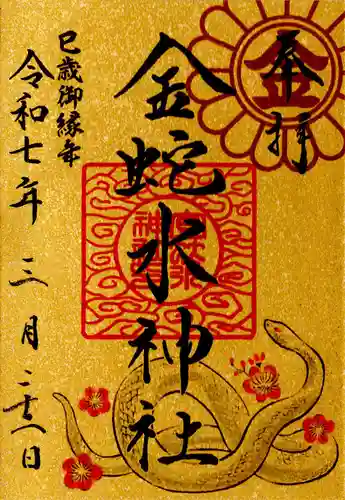 奉拝
金
金蛇水神社
巳歳御縁年
令和七年三月二十日